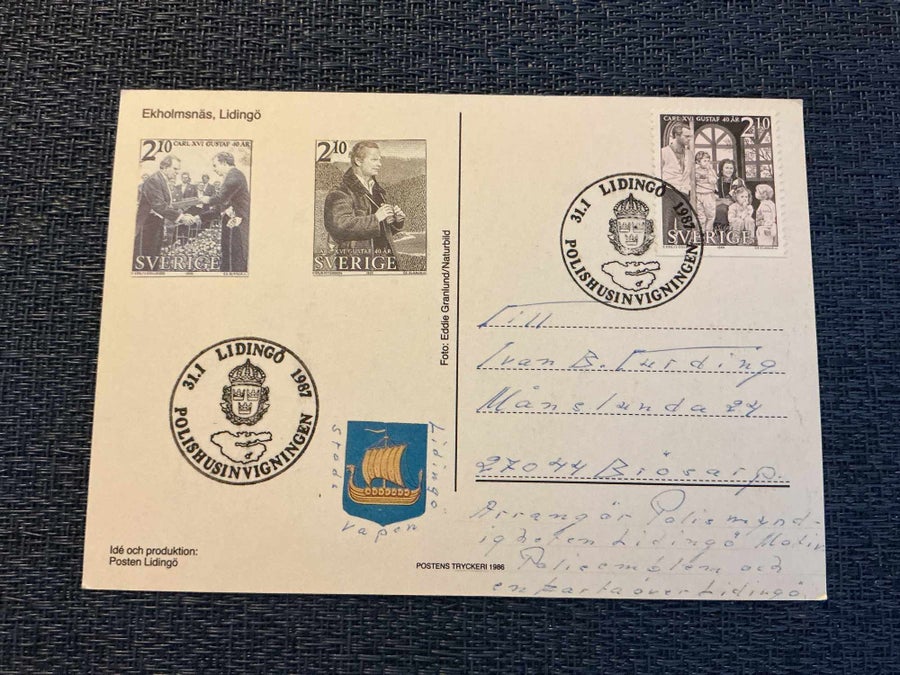 Ekholmsnäs, Lidingö
2 10 CARL XVI GUSTAF 40 ÅR
SVERIGE
2 10
CARL XVI GUSTAF 40 ÅR
SVERIGE
31.1 LIDINGÖ 1987
POLISHUSINVIGNINGEN
Lidingö
Stads
vapen
Idé och produktion:
Posten Lidingö
POSTENS TRYCKERI 1986
Foto: Eddie Granlund/Naturbild
CARL XVI GUSTAF 40 ÅR
2 10
SVERIGE
31.1 LIDINGÖ 1987
POLISHUSINVIGNINGEN
Till
Ivan B. Furding
Månslunda 24
27044 Brösarp.
Arrangör Polismynd-
igheten Lidingö Motiv
Polisemblem och
en karta över Lidingö.